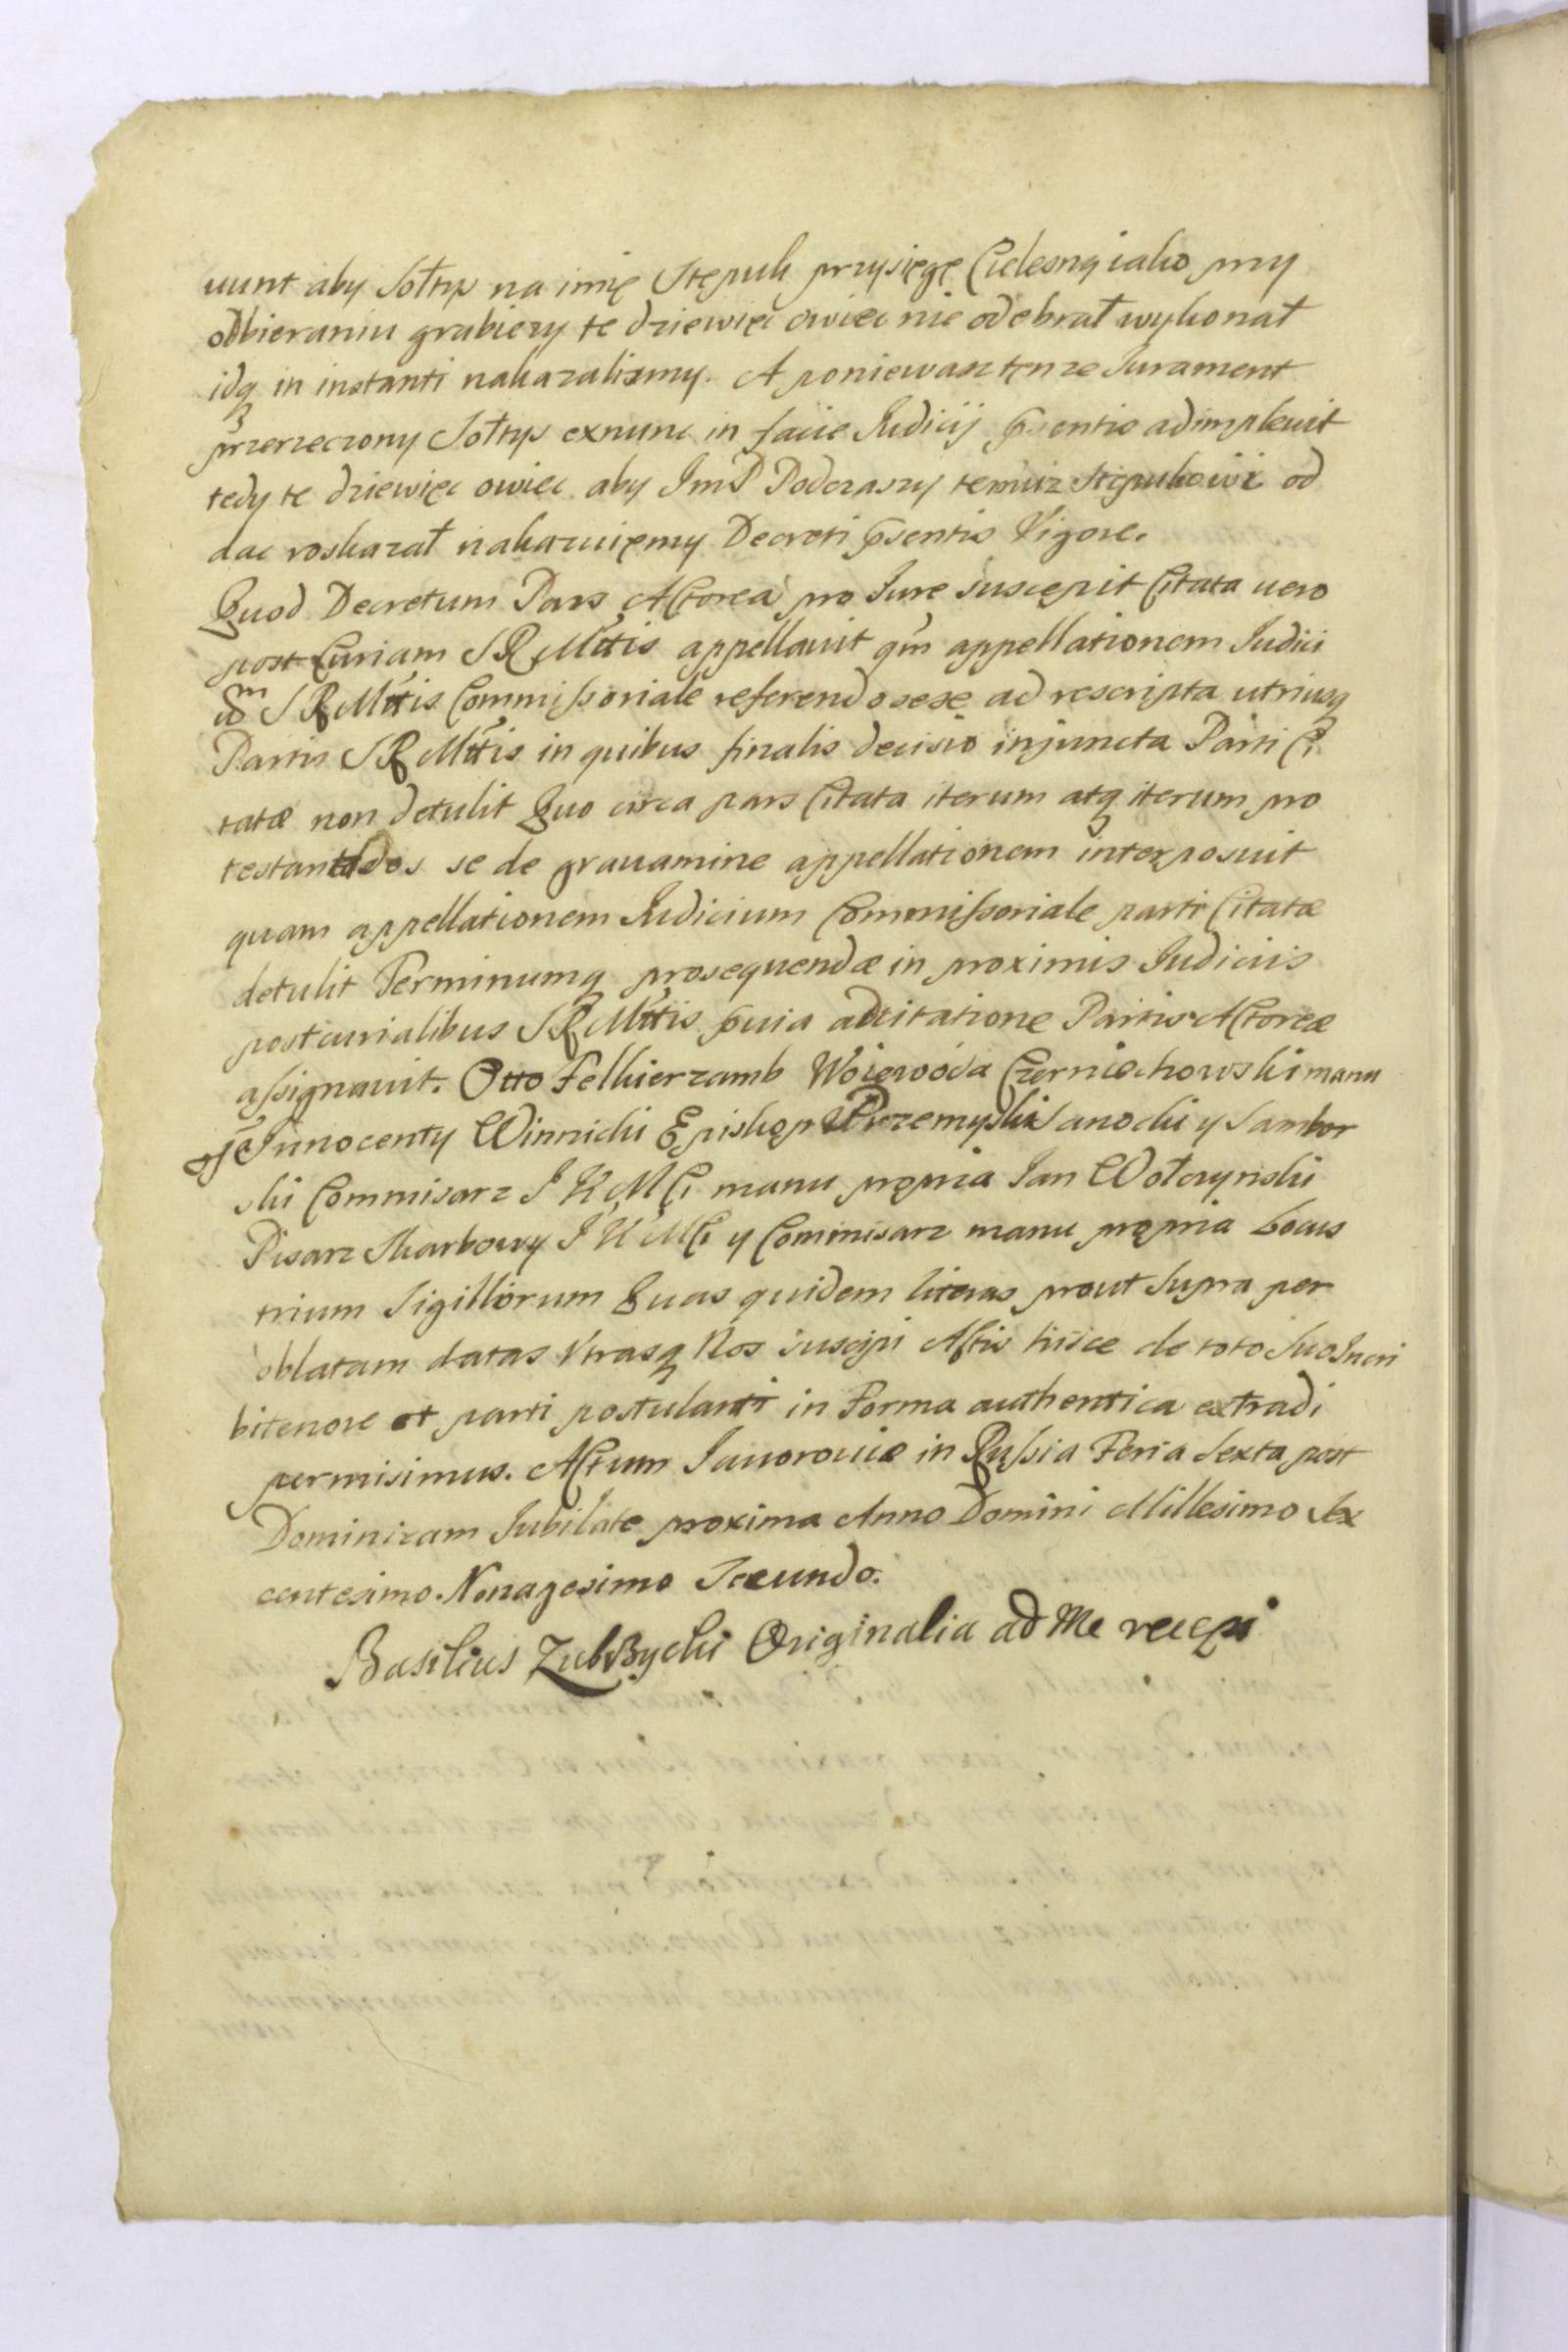 uunt aby Sołtys na imię Stepuk przysięgę Cielesną iako przy
odbieraniu grabieży te dziewięć owiec nie odebrał wykonał
idq in instanti nakazalismy. A poniewasz tenze Jurament
przerzeczony Sołtys exnunc in facie Judicij pñtis adimplevit
tedy te dziewięc owiec aby JmP Podczaszy temuiz Stepukowi od
dac roskazał nakazuięmy Decreti psentis Vigore.
Quod Decretum Pars Actorea pro Jure suscepit Citata uero
post Curiam SRMttis appellauit qm appellationem Judici
um SRMttis Commissoriale referendo sese ad rescripta utriusq
Partis SRMttis in quibus finalis decisio injuncta Parti Ci
tatæ non detulit Quo circa pars Citata iterum atq iterum pro
testando se de grauamine appellationem interposuit
quam appellationem Judicium Commissoriale parti Citatæ
detulit Terminumq prosequendæ in proximis Judiciis
postcurialibus SRMttis adcitatione Partis Actoreæ
assignauit. Otto Felkierzamb Woiewoda Czerniechowski manu
Innocenty Winnicki Episkop Przemyski Sanocki y Sambor
ski Commisarz JKMCi manu propria Jan Wołczynski
Pisarz Skarbowy JKMCi y Commisarz manu propria Locus
trium Sigillorum Quas quidem literas prout Supra per
oblatam datas Vtrasq Nos suscipi Actis hisce de toto Suo Incri
bitenore et parti postulanti in Forma authentica extradi
permisimus. Actum Jauorouiæ in Russia Feria Sexta post
Dominicam Jubilate proxima Anno Domini Millesimo Sex
centesimo. Nonagesimo Secundo.
Basilius Zubrzycki Originalia ad Me recepi